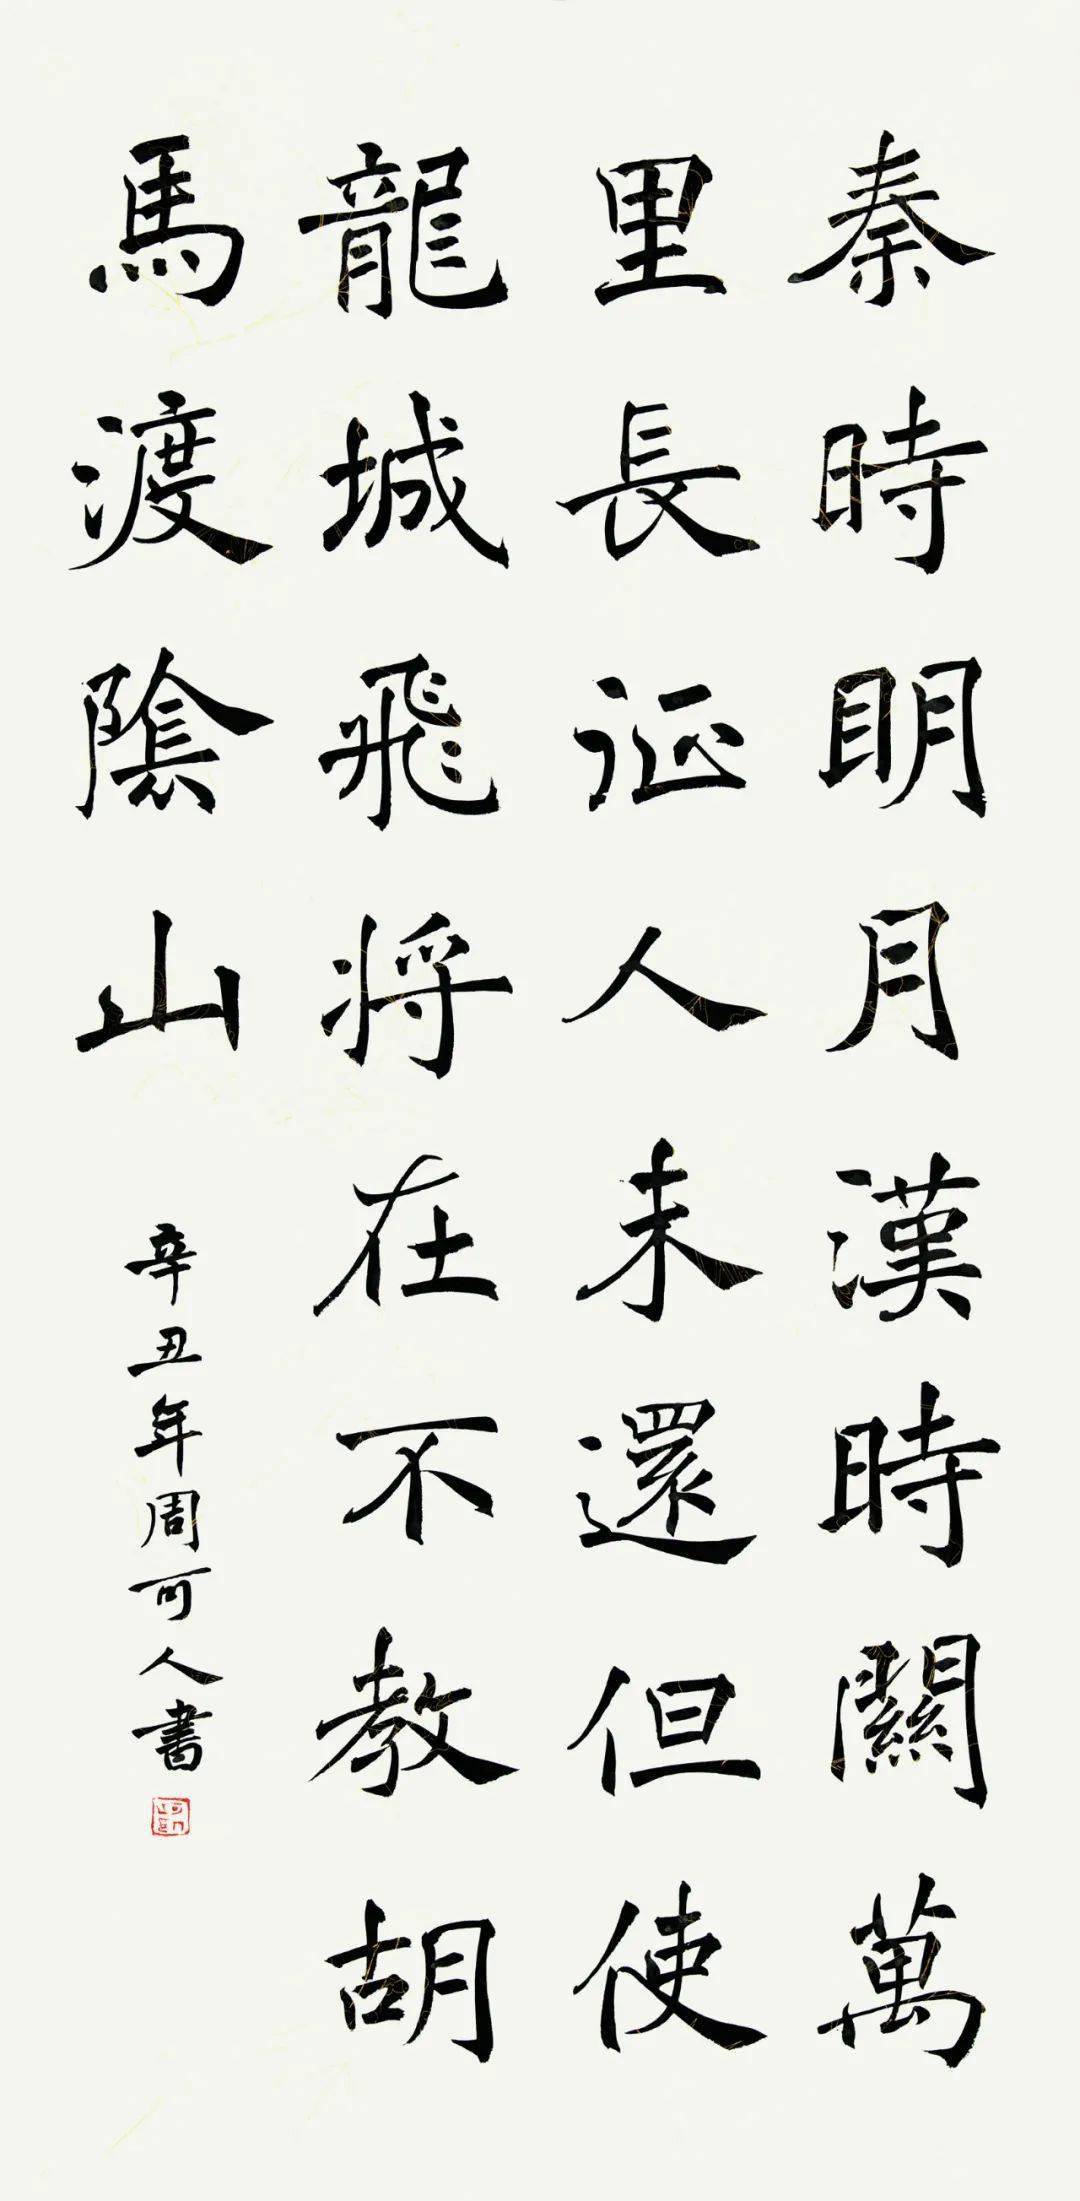 秦時明月漢時關萬
里長征人未還但使
龍城飛将在不教胡
馬渡陰山
辛丑年周可人書